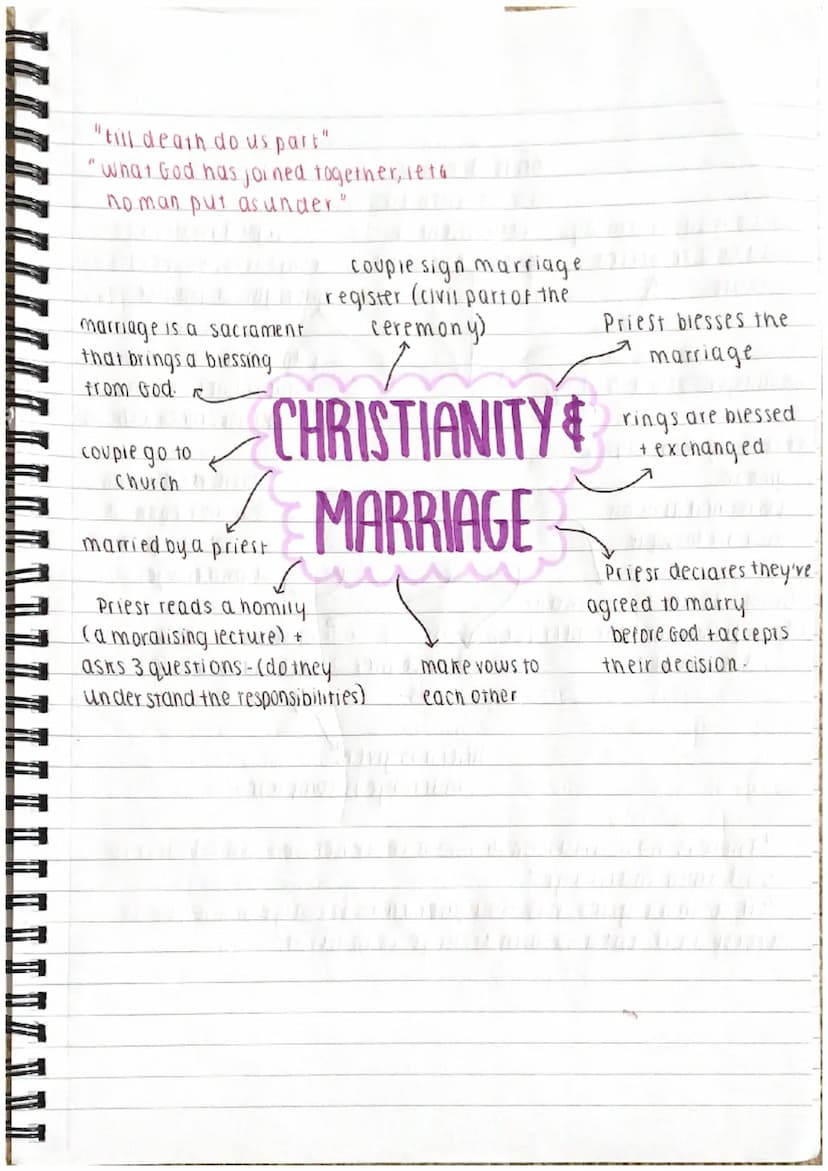 "till death do us part"
"what God has joined together, let
no man put asunder"
couple sign marriage
register (civil part of the
ceremony)
marriage is a sacrament
that brings a blessing
from God.
Priest blesses the
marriage
CHRISTIANITY &
MARRIAGE
rings are blessed
+ exchanged
couple go to
church
married by a priest
Priest reads a homily
(a moralising lecture) +
asks 3 questions - (do they
understand the responsibilities)
make vows to
each other
Priest declares they've
agreed to marry
before God + accepts
their decision.